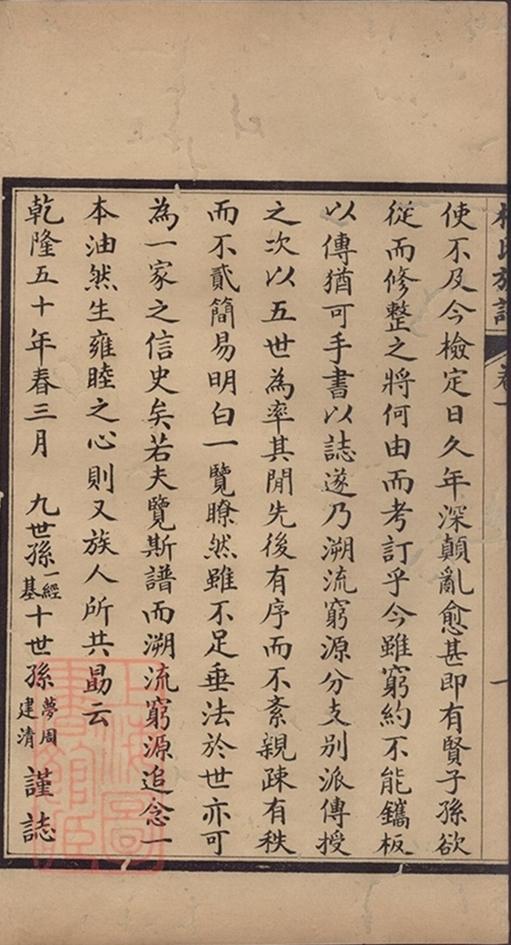 氏族譜
卷一
一
使不及今檢定日久年深顛亂愈甚即有賢子孫欲
從而修整之將何由而考訂乎今雖窮約不能鐫板
以傳猶可手書以誌遂乃溯流窮源分支別派傳授
之次以五世為率其閒先後有序而不紊親疎有秩
而不貳簡易明白一覽瞭然雖不足垂法於世亦可
為一家之信史矣若夫覽斯譜而溯流窮源追念一
本油然生雍睦之心則又族人所共勗云
乾隆五十年春三月 九世孫一經基十世孫夢周建清 謹誌
上海圖書館藏